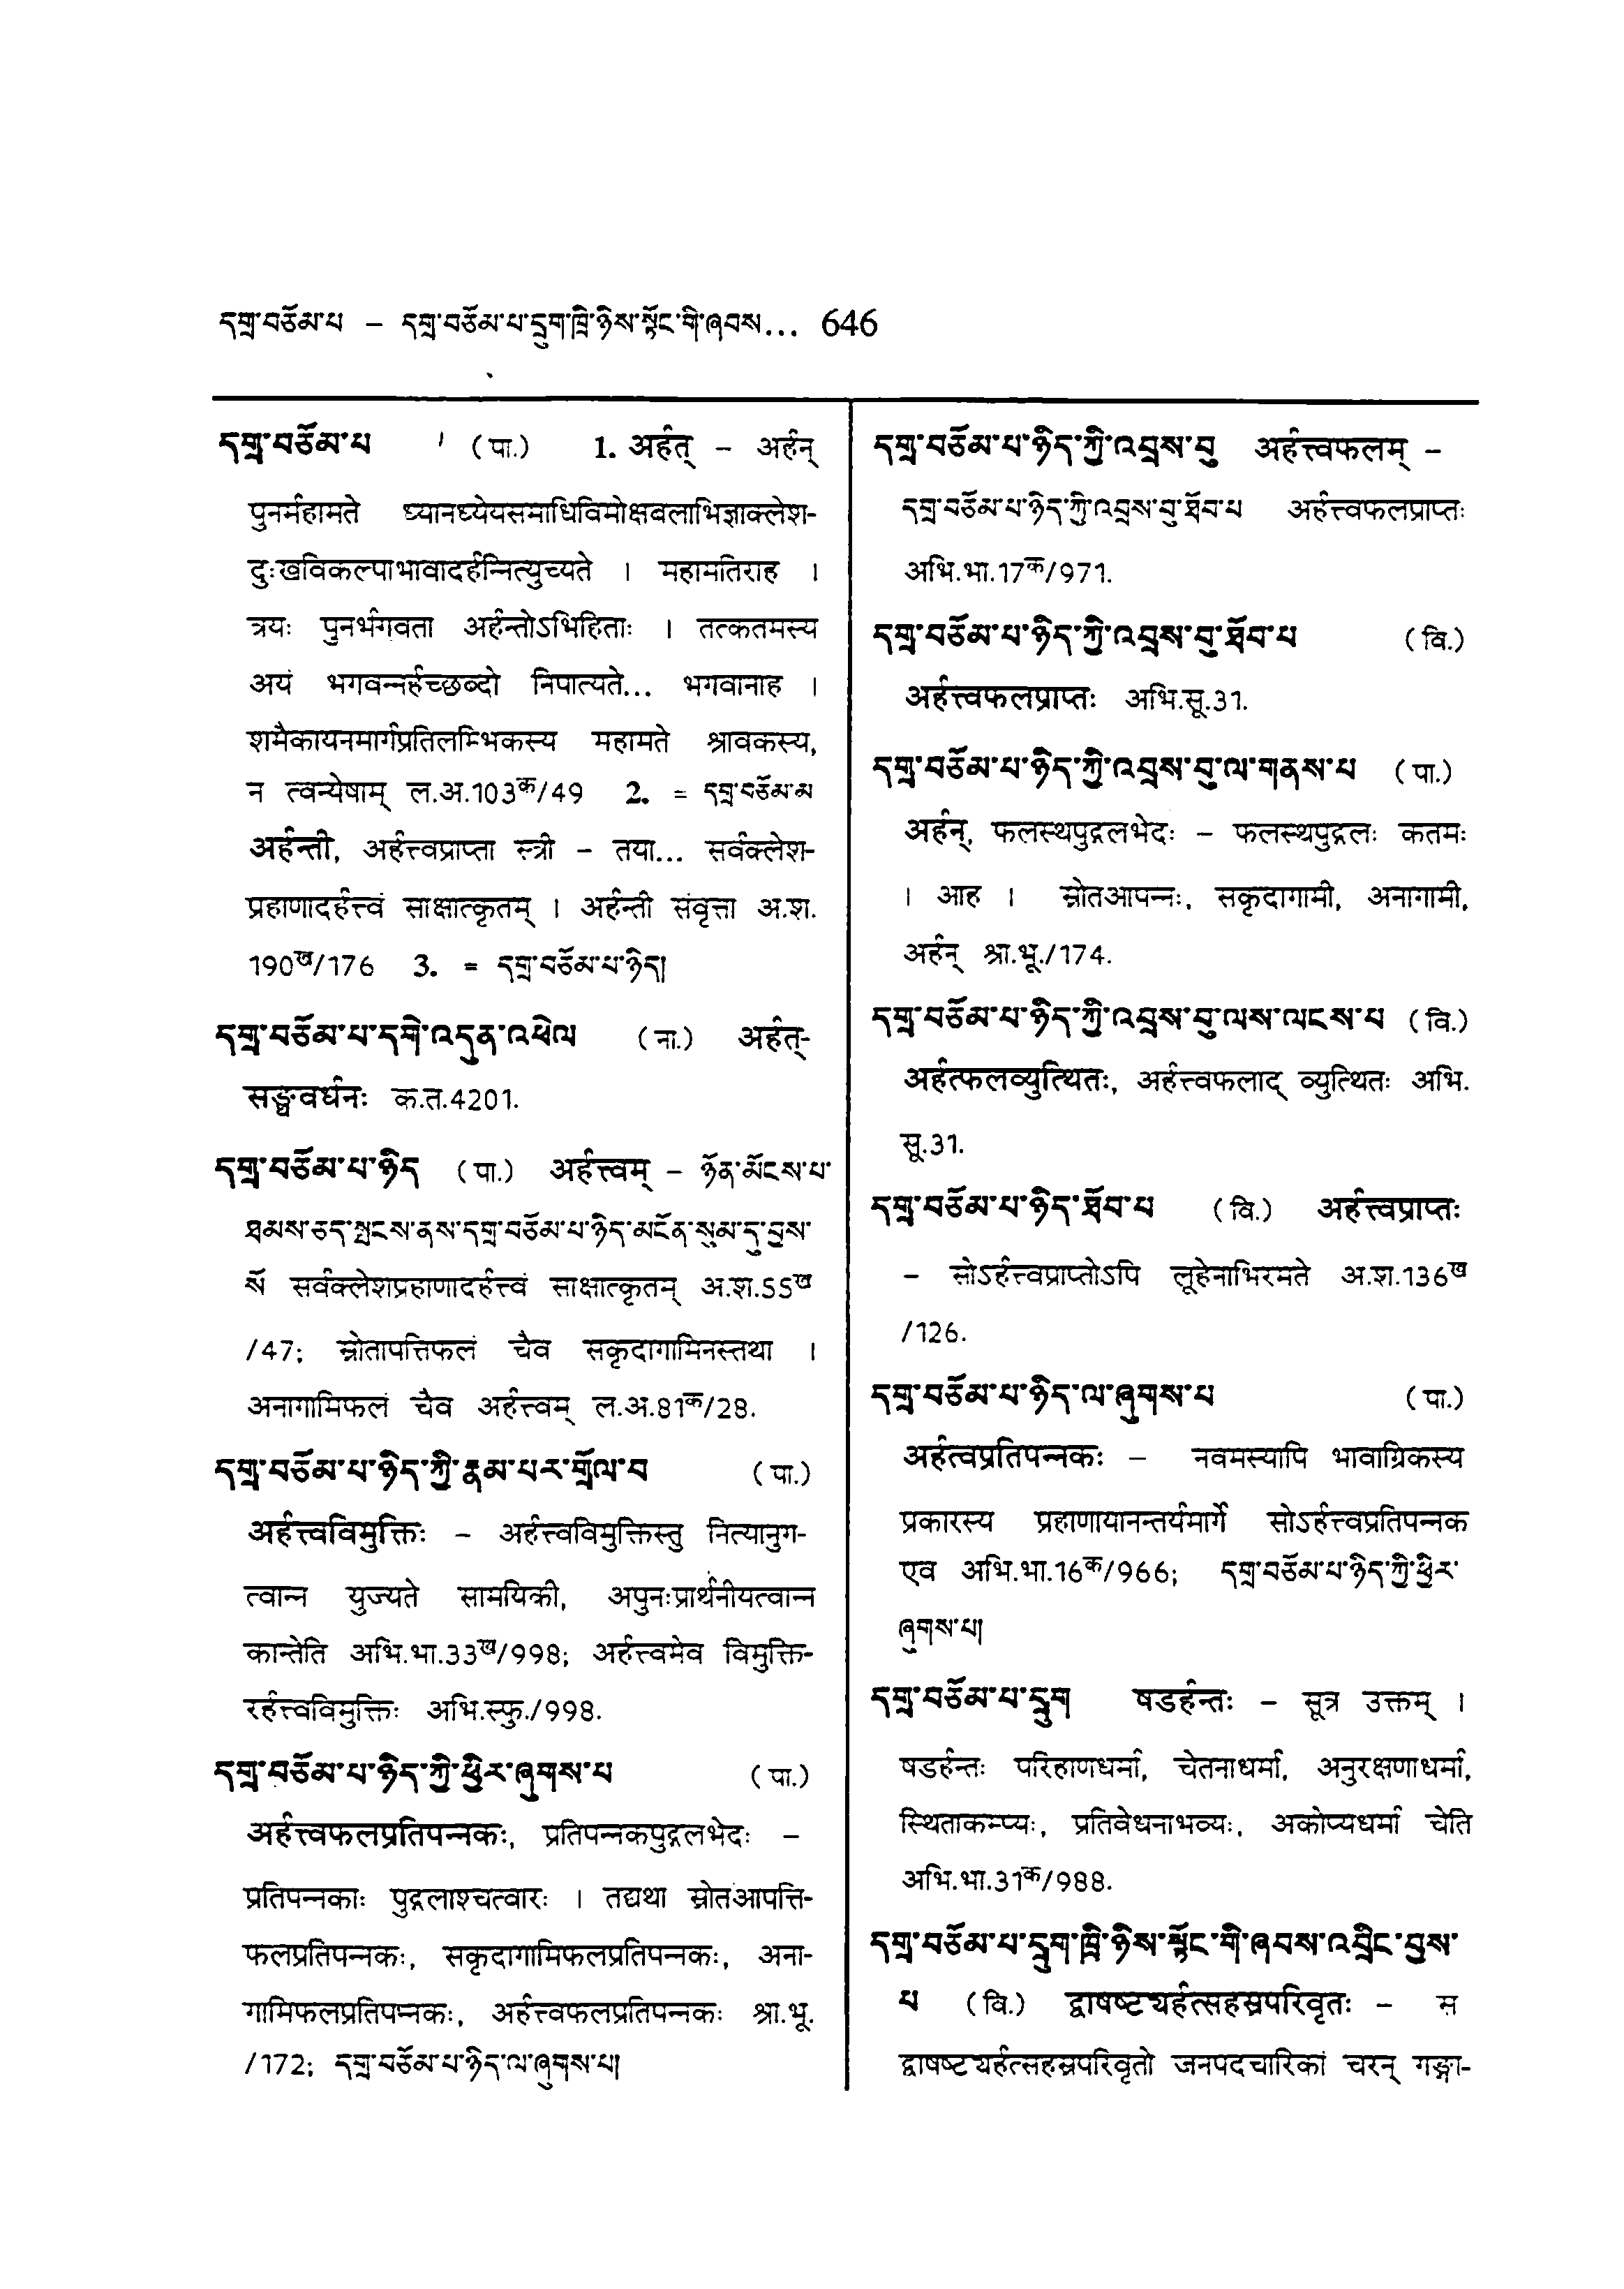 དགྲ་བཅོམ་པ – དགྲ་བཅོམ་པ་དྲུག་ཁྲི་ཉིས་སྟོང་གི་ཞབས... 646
དགྲ་བཅོམ་པ (पा.) 1. अर्हत् – अर्हन्
पुनर्महामते ध्यानध्येयसमाधिविमोक्षबलाभिज्ञाक्लेश-
दुःखविकल्पाभावादर्हन्नित्युच्यते । महामतिराह ।
त्रयः पुनर्भगवता अर्हन्तोऽभिहिताः । तत्कतमस्य
अयं भगवन्नर्हच्छब्दो निपात्यते... भगवानाह ।
शमैकायनमार्गप्रतिलम्भिकस्य महामते श्रावकस्य,
न त्वन्येषाम् ल.अ.103क/49 2. = དགྲ་བཅོམ་མ
अर्हन्ती, अर्हत्त्वप्राप्ता स्त्री – तया... सर्वक्लेश-
प्रहाणादर्हत्त्वं साक्षात्कृतम् । अर्हन्ती संवृत्ता अ.श.
190ख/176 3. = དགྲ་བཅོམ་པ་ཉིད།
དགྲ་བཅོམ་པ་དགེ་འདུན་འཕེལ (ना.) अर्हत्-
सङ्घवर्धनः क.त.4201.
དགྲ་བཅོམ་པ་ཉིད (पा.) अर्हत्त्वम् – ཉོན་མོངས་པ་
ཐམས་ཅད་སྤངས་ནས་དགྲ་བཅོམ་པ་ཉིད་མངོན་སུམ་དུ་བྱས་
སོ सर्वक्लेशप्रहाणादर्हत्त्वं साक्षात्कृतम् अ.श.55ख
/47; स्रोतापत्तिफलं चैव सकृदागामिनस्तथा ।
अनागामिफलं चैव अर्हत्त्वम् ल.अ.81क/28.
དགྲ་བཅོམ་པ་ཉིད་ཀྱི་རྣམ་པར་གྲོལ་བ (पा.)
अर्हत्त्वविमुक्तिः – अर्हत्त्वविमुक्तिस्तु नित्यानुग-
त्वान्न युज्यते सामयिकी, अपुनःप्रार्थनीयत्वान्न
कान्तेति अभि.भा.33ख/998; अर्हत्त्वमेव विमुक्ति-
रर्हत्त्वविमुक्तिः अभि.स्फु./998.
དགྲ་བཅོམ་པ་ཉིད་ཀྱི་ཕྱིར་ཞུགས་པ (पा.)
अर्हत्त्वफलप्रतिपन्नकः, प्रतिपन्नकपुद्गलभेदः –
प्रतिपन्नकाः पुद्गलाश्चत्वारः । तद्यथा स्रोतआपत्ति-
फलप्रतिपन्नकः, सकृदागामिफलप्रतिपन्नकः, अना-
गामिफलप्रतिपन्नकः, अर्हत्त्वफलप्रतिपन्नकः श्रा.भू.
/172; དགྲ་བཅོམ་པ་ཉིད་ལ་ཞུགས་པ།
དགྲ་བཅོམ་པ་ཉིད་ཀྱི་འབྲས་བུ अर्हत्त्वफलम् –
དགྲ་བཅོམ་པ་ཉིད་ཀྱི་འབྲས་བུ་ཐོབ་པ अर्हत्त्वफलप्राप्तः
अभि.भा.17क/971.
དགྲ་བཅོམ་པ་ཉིད་ཀྱི་འབྲས་བུ་ཐོབ་པ (वि.)
अर्हत्त्वफलप्राप्तः अभि.सू.31.
དགྲ་བཅོམ་པ་ཉིད་ཀྱི་འབྲས་བུ་ལ་གནས་པ (पा.)
अर्हन्, फलस्थपुद्गलभेदः – फलस्थपुद्गलः कतमः
। आह । स्रोतआपन्नः, सकृदागामी, अनागामी,
अर्हन् श्रा.भू./174.
དགྲ་བཅོམ་པ་ཉིད་ཀྱི་འབྲས་བུ་ལས་ལངས་པ (वि.)
अर्हत्फलव्युत्थितः, अर्हत्त्वफलाद् व्युत्थितः अभि.
सू.31.
དགྲ་བཅོམ་པ་ཉིད་ཐོབ་པ (वि.) अर्हत्त्वप्राप्तः
– सोऽर्हत्त्वप्राप्तोऽपि लूहेनाभिरमते अ.श.136ख
/126.
དགྲ་བཅོམ་པ་ཉིད་ལ་ཞུགས་པ (पा.)
अर्हत्वप्रतिपन्नकः – नवमस्यापि भावाग्रिकस्य
प्रकारस्य प्रहाणायानन्तर्यमार्गे सोऽर्हत्त्वप्रतिपन्नक
एव अभि.भा.16क/966; དགྲ་བཅོམ་པ་ཉིད་ཀྱི་ཕྱིར་
ཞུགས་པ།
དགྲ་བཅོམ་པ་དྲུག षडर्हन्तः – सूत्र उक्तम् ।
षडर्हन्तः परिहाणधर्मा, चेतनाधर्मा, अनुरक्षणाधर्मा,
स्थिताकम्प्यः, प्रतिवेधनाभव्यः, अकोप्यधर्मा चेति
अभि.भा.31क/988.
དགྲ་བཅོམ་པ་དྲུག་ཁྲི་ཉིས་སྟོང་གི་ཞབས་འབྲིང་བྱས་
པ (वि.) द्वाषष्ट्यर्हत्सहस्रपरिवृतः – स
द्वाषष्ट्यर्हत्सहस्रपरिवृतो जनपदचारिकां चरन् गङ्गा-